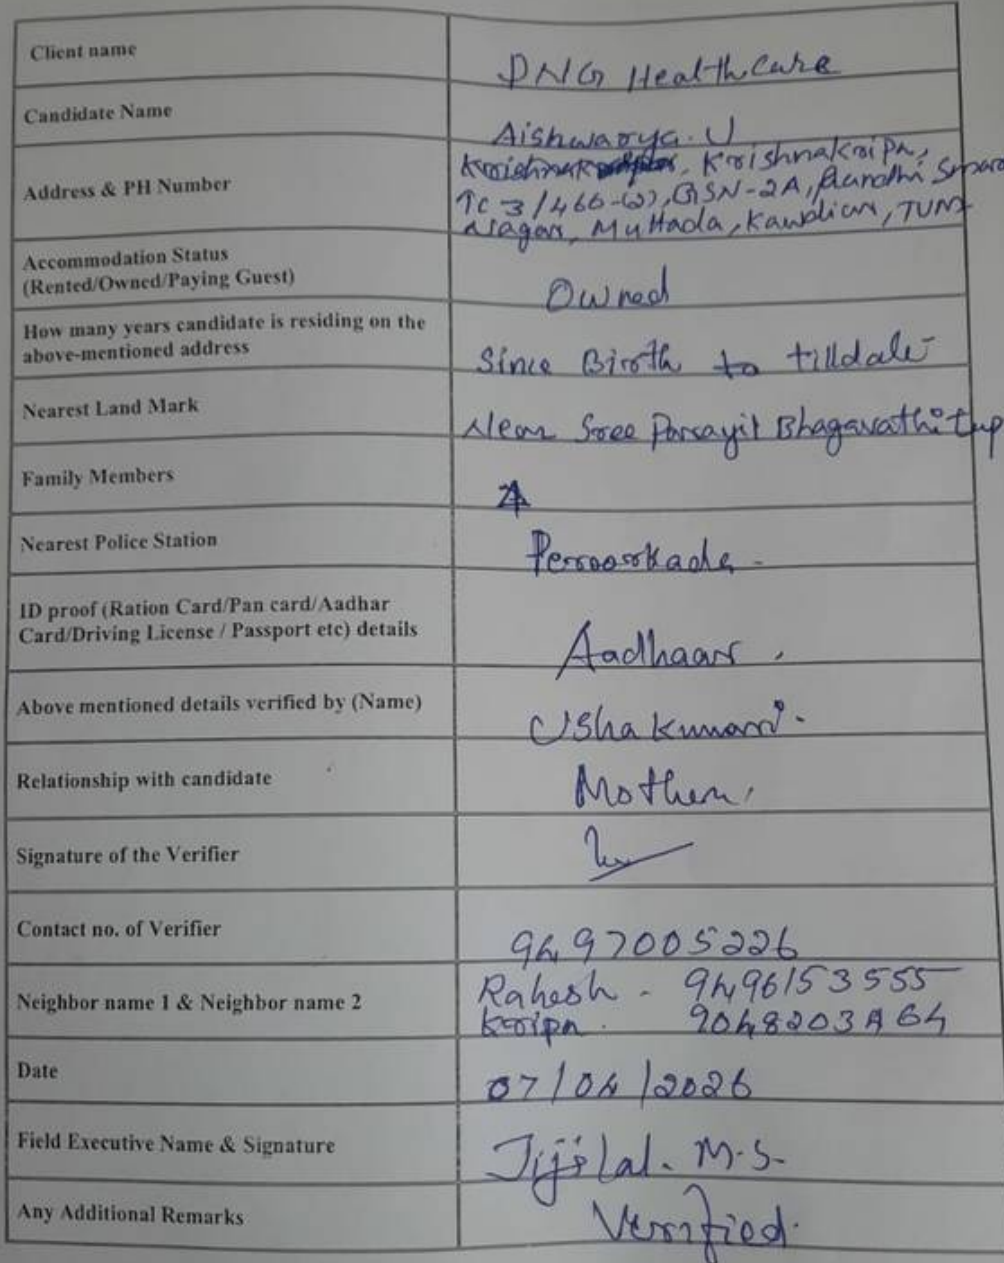 Client name
DNG Healthcare
Candidate Name
Aishwarya. U
Address & PH Number
Krishnakripa,
TC 3/466-(2), GSN-2A,
Nagar, Muttada, Kawdiar, TVM
Accommodation Status
(Rented/Owned/Paying Guest)
Owned
How many years candidate is residing on the
above-mentioned address
Since Birth to tilldate
Nearest Land Mark
Near Sree Parayil Bhagavathi
Family Members
4
Nearest Police Station
Peroorkada -
ID proof (Ration Card/Pan card/Aadhar
Card/Driving License / Passport etc) details
Aadhaar.
Above mentioned details verified by (Name)
Usha Kumari.
Relationship with candidate
Mother.
Signature of the Verifier
Contact no. of Verifier
9497005226
Neighbor name 1 & Neighbor name 2
Rahesh - 9496153555
Kripa. 9048203464
Date
07/04/2026
Field Executive Name & Signature
Jijilal. M.S.
Any Additional Remarks
Verified.